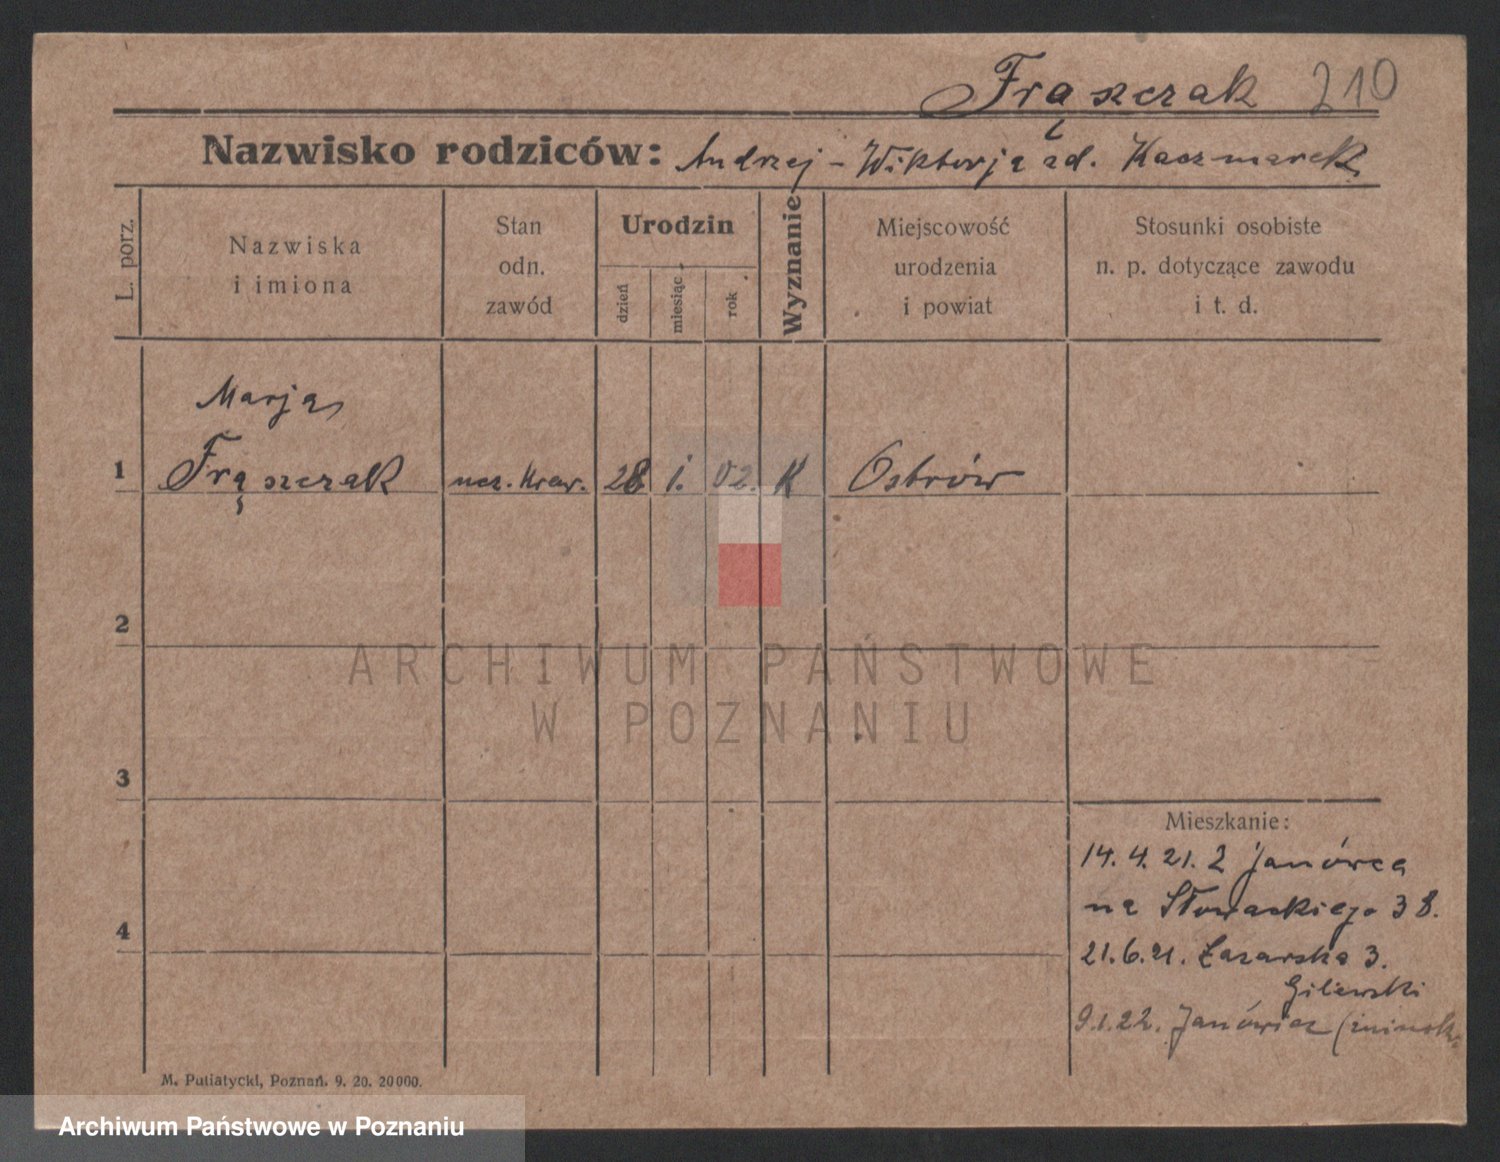 Frąszczak 210
Nazwisko rodziców: Andrzej - Wiktorja zd. Kaczmarek
L. porz.
Nazwiska
i imiona
Stan
odn.
zawód
Urodzin
dzień
miesiąc
rok
Wyznanie
Miejscowość
urodzenia
i powiat
Stosunki osobiste
n. p. dotyczące zawodu
i t. d.
Marja
1 Frąszczak ucz. kraw. 28 1. 02. K Ostrów
2
3
4
ARCHIWUM PAŃSTWOWE
W POZNANIU
Mieszkanie:
14. 4. 21. z Janówca
na Słowackiego 38.
21. 6. 21. Łazarska 3.
Gilewski
9.1.22. Janówiec
M. Putiatycki, Poznań. 9. 20. 20000.
Archiwum Państwowe w Poznaniu